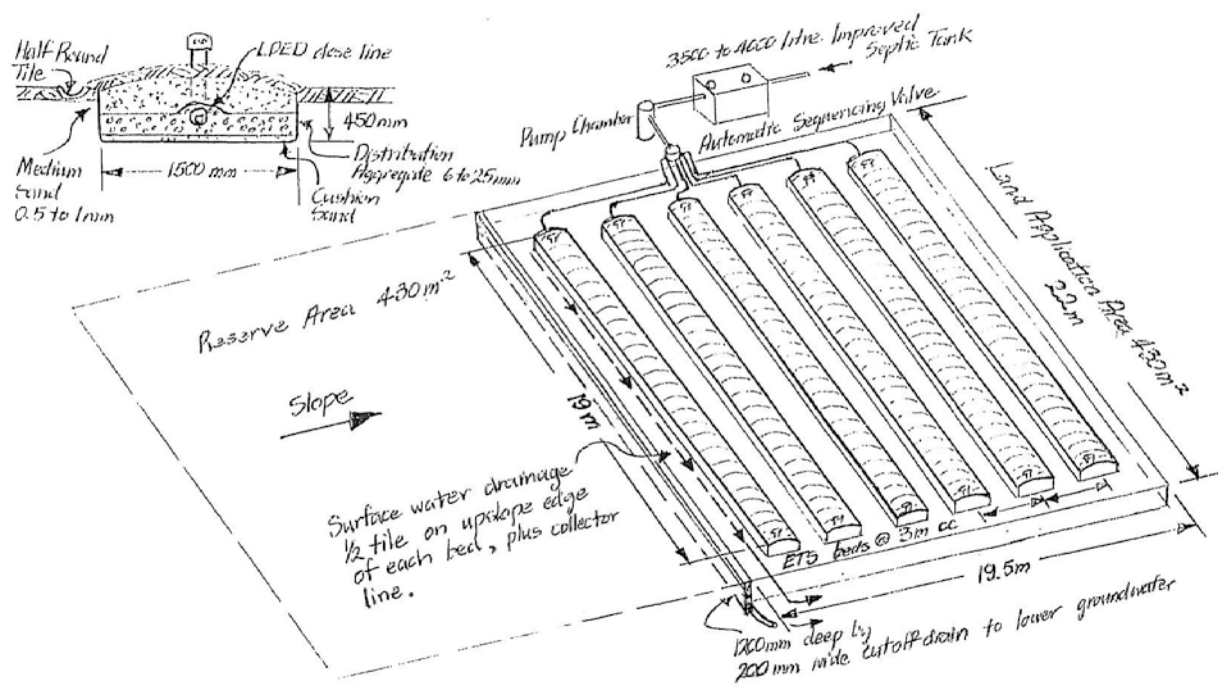 Half Round
Tile
LPED dose line
450mm
Distribution
Aggregate 6 to 25mm
1500 mm
Cushion
Sand
Medium
Sand
0.5 to 1mm
3500 to 4000 litre Improved
Septic Tank
Pump Chamber
Automatic Sequencing Valve
Land Application Area 430m²
22m
Reserve Area 430m²
Slope
19m
Surface water drainage
1/2 tile on upslope edge
of each bed, plus collector
line.
ETS beds @ 3m cc
19.5m
1200mm deep by
200mm wide cutoff drain to lower groundwater